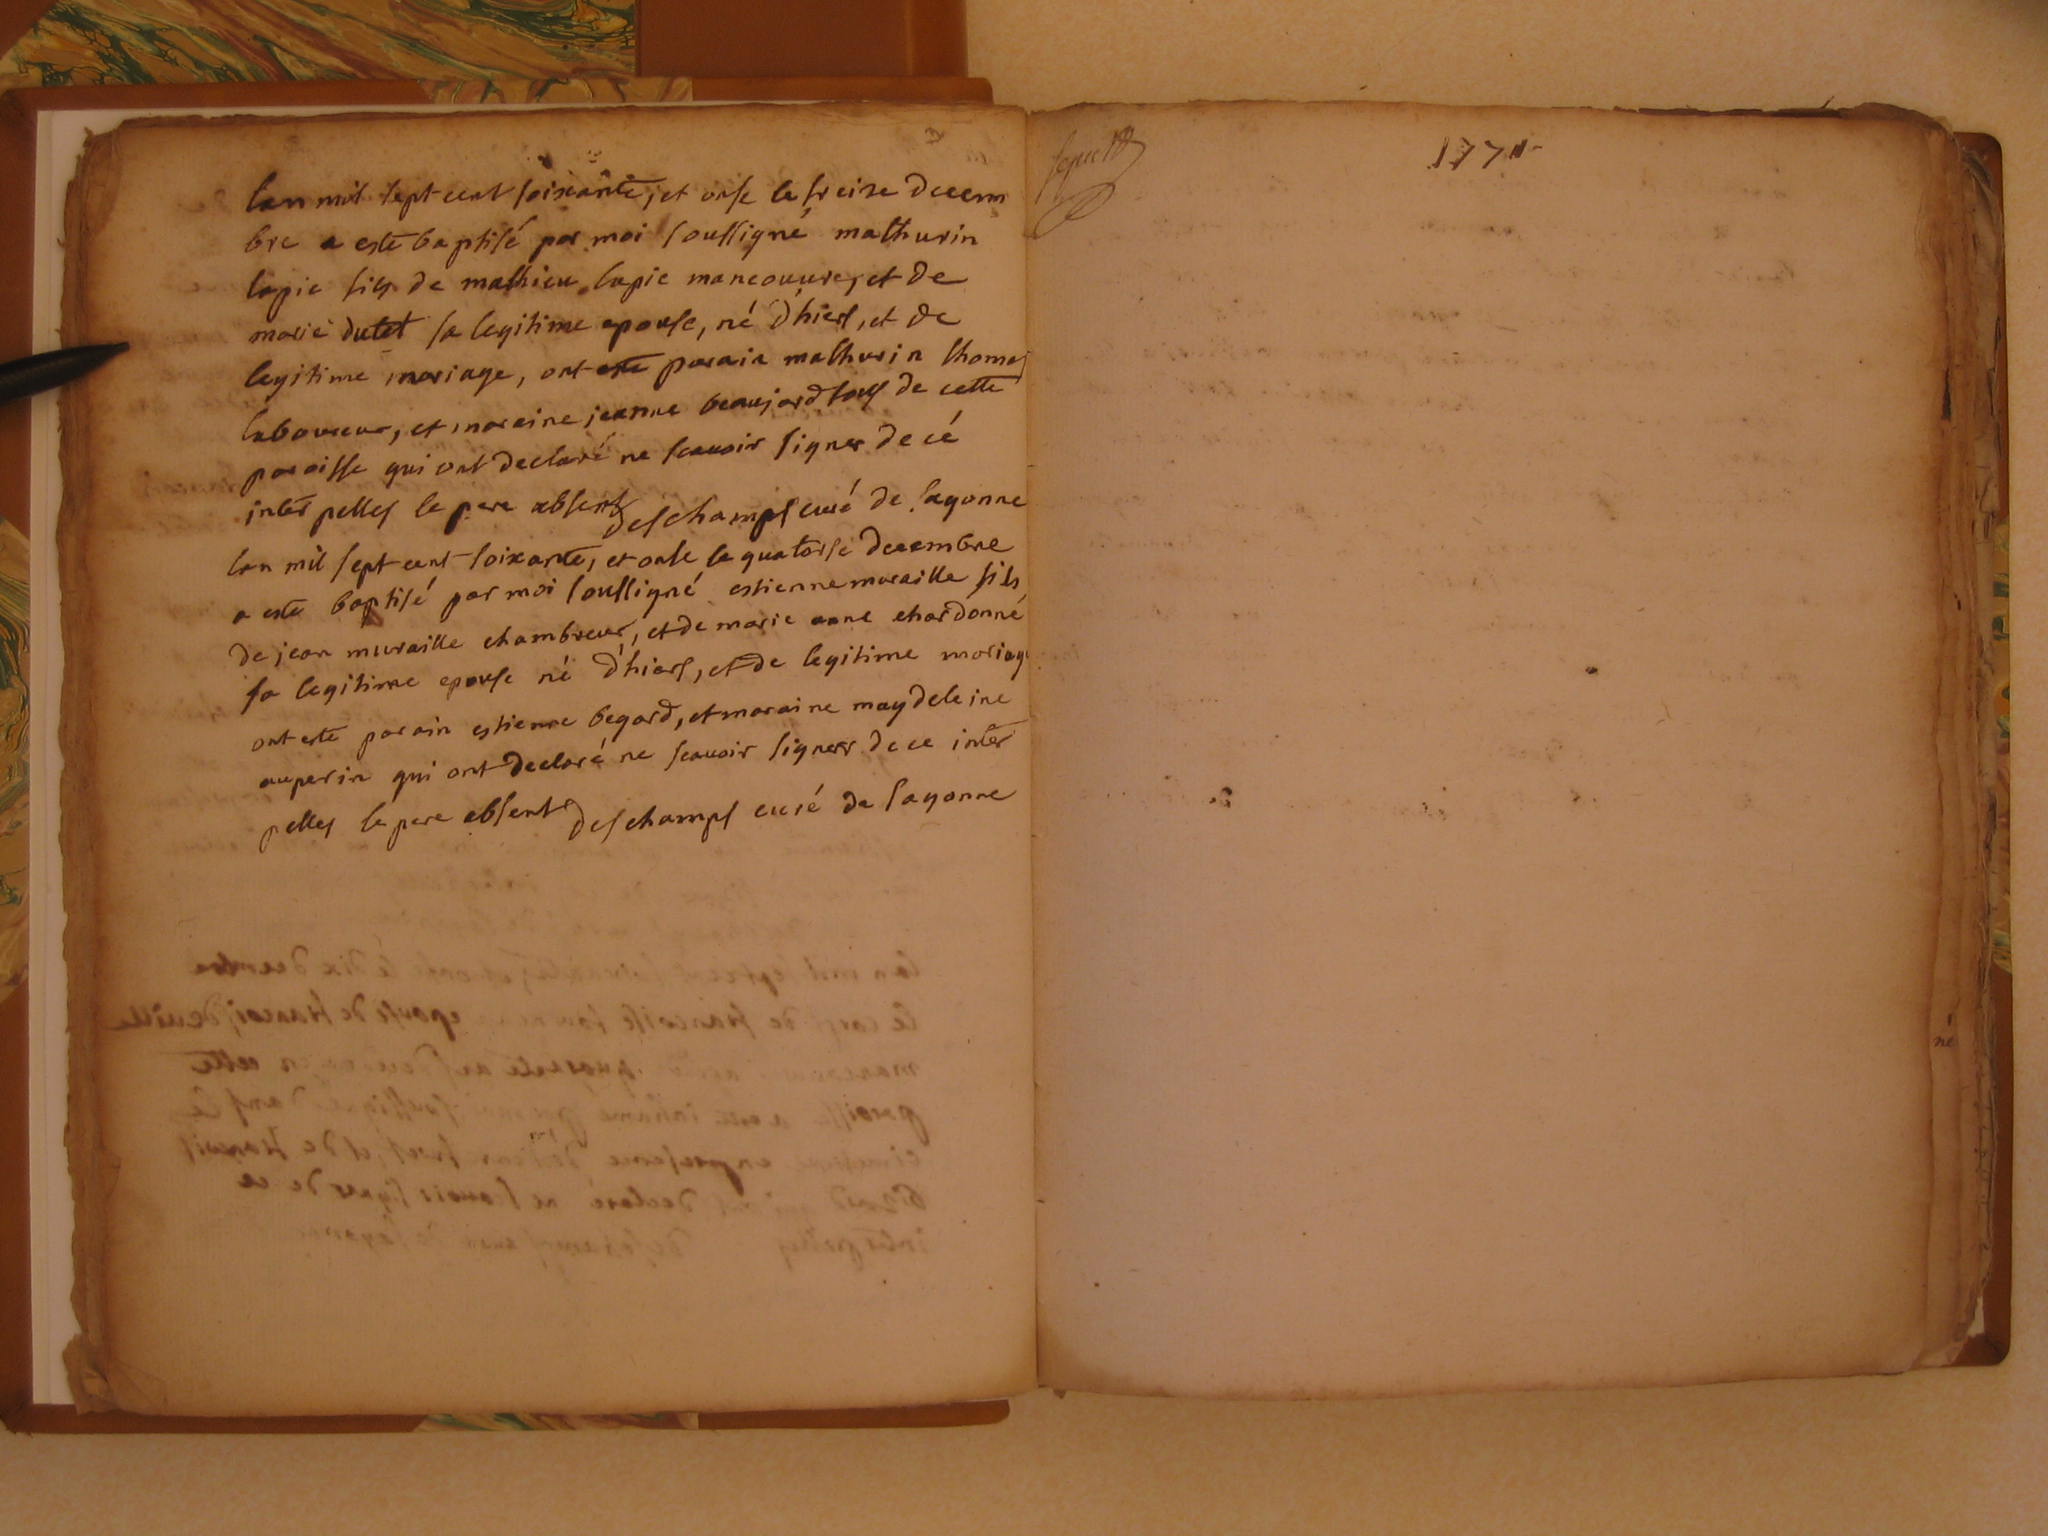 lan mil sept cent soixante, et onse le treize decem
bre a esté baptisé par moi soussigné mathurin
lapie fils de mathieu lapie maneouvre, et de
marie dutet sa legitime epouse, né d'hiers, et de
legitime mariage, ont esté parain mathurin thomas
laboureur, et maraine jeanne beaujard tous de cette
paroisse qui ont declaré ne scauoir signer de cé
interpelles le pere absent deschamps curé de sagonne
lan mil sept cent soixante, et onse le quatorse decembre
a esté baptisé par moi soussigné estienne muraille fils
de jean muraille chambreur, et de marie anne chardonné
sa legitime epouse né d'hiers, et de legitime mariage
ont esté parain estienne begard, et maraine magdeleine
auperin qui ont declaré ne scauoir signer de ce inter
pelles le pere absent deschamps curé de sagonne
1771
né